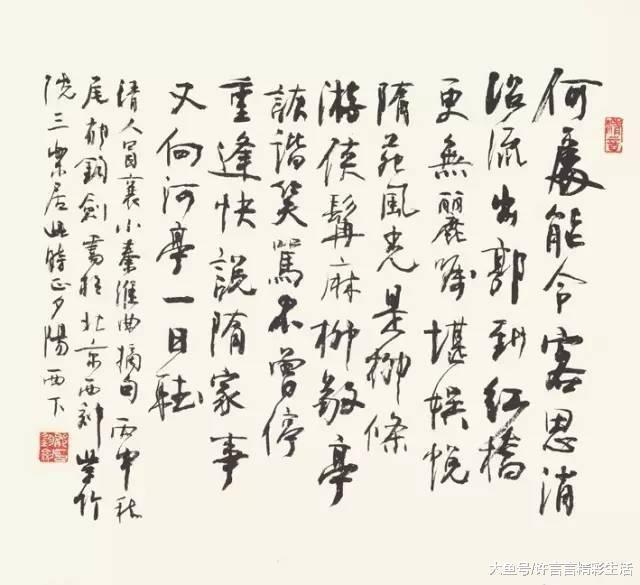 何處能令客思消
沿流出郭到紅橋
更無麗躅堪娛悅
隋苑風光是柳條
游俠髯麻柳敬亭
詼諧笑罵不曾停
重逢快說隋家事
又向河亭一日聽
清人冒襄小秦淮曲摘句 丙申秋
尾 郁鈞劍書於北京西郊 學竹
曉三樂居 此時正夕陽西下
大鱼号/许言言精彩生活